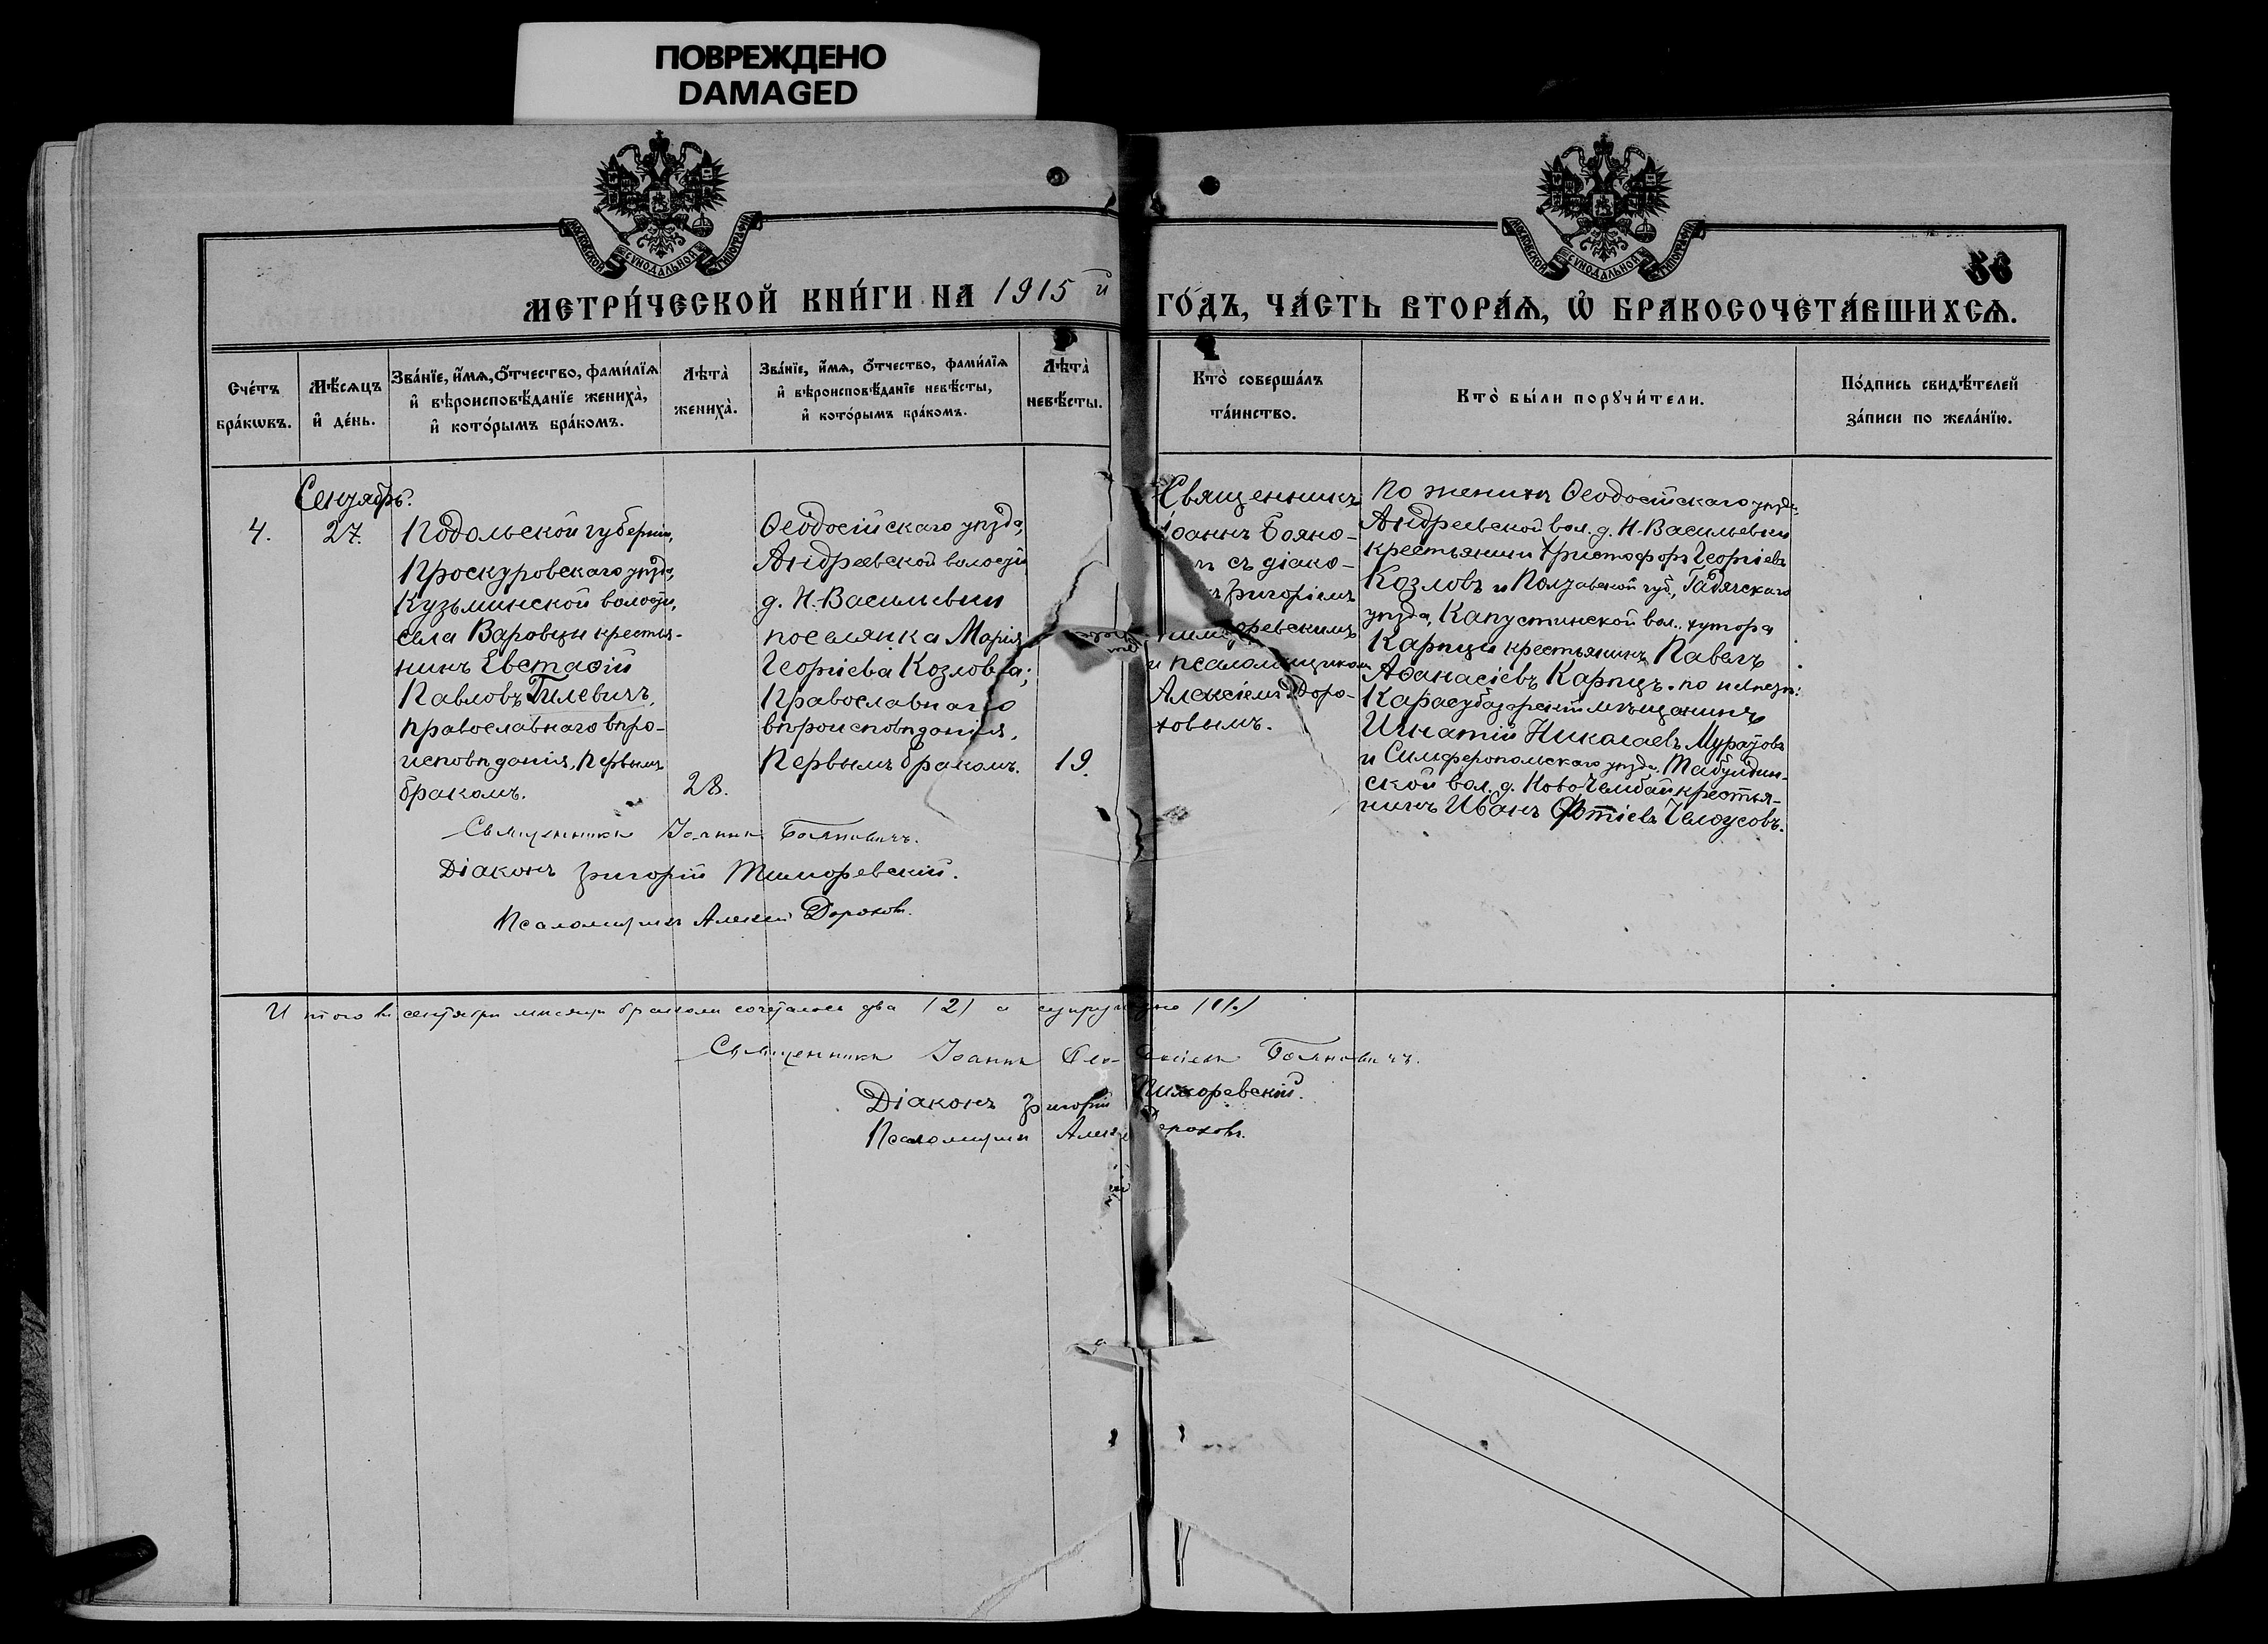 ПОВРЕЖДЕНО
DAMAGED
МОСКОВСКОЙ СѴНОДАЛЬНОЙ ТИПОГРАФІИ
МОСКОВСКОЙ СѴНОДАЛЬНОЙ ТИПОГРАФІИ
56
МЕТРИ́ЧЕСКОЙ КНИ́ГИ НА 1915 й ГО́ДЪ, ЧА́СТЬ ВТОРА́Ѧ, Ѡ҆ БРАКОСОЧЕТА́ВШИХСѦ.
Сче́тъ
бра́кѡвъ.
Мѣ́сѧцъ
и҆ де́нь.
Зва́нїе, и҆́мѧ, ѻ҆́тчество, фами́лїѧ
и҆ вѣроисповѣ́данїе жениха̀,
и҆ кото́рымъ бра́комъ.
Лѣта̀
жениха̀.
Зва́нїе, и҆́мѧ, ѻ҆́тчество, фами́лїѧ
и҆ вѣроисповѣ́данїе невѣ́сты,
и҆ кото́рымъ бра́комъ.
Лѣта̀
невѣ́сты.
Кто̀ соверша́лъ
та́инство.
Кто̀ бы́ли порꙋчи́тели.
По́дпись свидѣ́телей
за́писи по жела́нїю.
Сентябрь.
4.
27.
Подольской губерніи,
Проскуровскаго уѣзда,
Кузьминской волости,
села Варовцы крестья-
нинъ Евстафій
Павловъ Гилевичъ,
православнаго вѣро-
исповѣданія, первымъ
бракомъ.
28.
Ѳеодосійскаго уѣзда,
Андреевской волости
д. Н. Васильевки
поселянка Марія
Георгіева Козловa;
Православнаго
вѣроисповѣданія,
Первымъ бракомъ.
19.
Священникъ
Іоаннъ Бояно-
съ діако-
Григоріемъ
и псаломщикомъ
Алексіемъ Доро-
ховымъ.
По женихѣ Ѳеодосійскаго уѣзда
Андреевской вол. д. Н. Васильевки
крестьянин Христофоръ Георгіевъ
Козловъ и Полтавской губ., Гадячскаго
уѣзда, Капустинской вол., хутора
Карпцы крестьянинъ Павелъ
Аѳанасіевъ Карпцъ. по невѣстѣ:
Карасубазарскій мѣщанинъ
Игнатій Николаевъ Муратовъ
и Симферопольскаго уѣзда, Табулдин-
ской вол. д. Ново Челебай крестья-
нинъ Иванъ Фотіевъ Челоусовъ.
Священникъ Іоаннъ Бояновичъ.
Діаконъ Григорій Тиморевскій.
Псаломщикъ Алексій Дороховъ.
Итого въ сентябрѣ мѣсяцѣ бракомъ сочеталось два (2)
Священникъ Іоаннъ Бояновичъ.
Діаконъ Григорій
Псаломщикъ